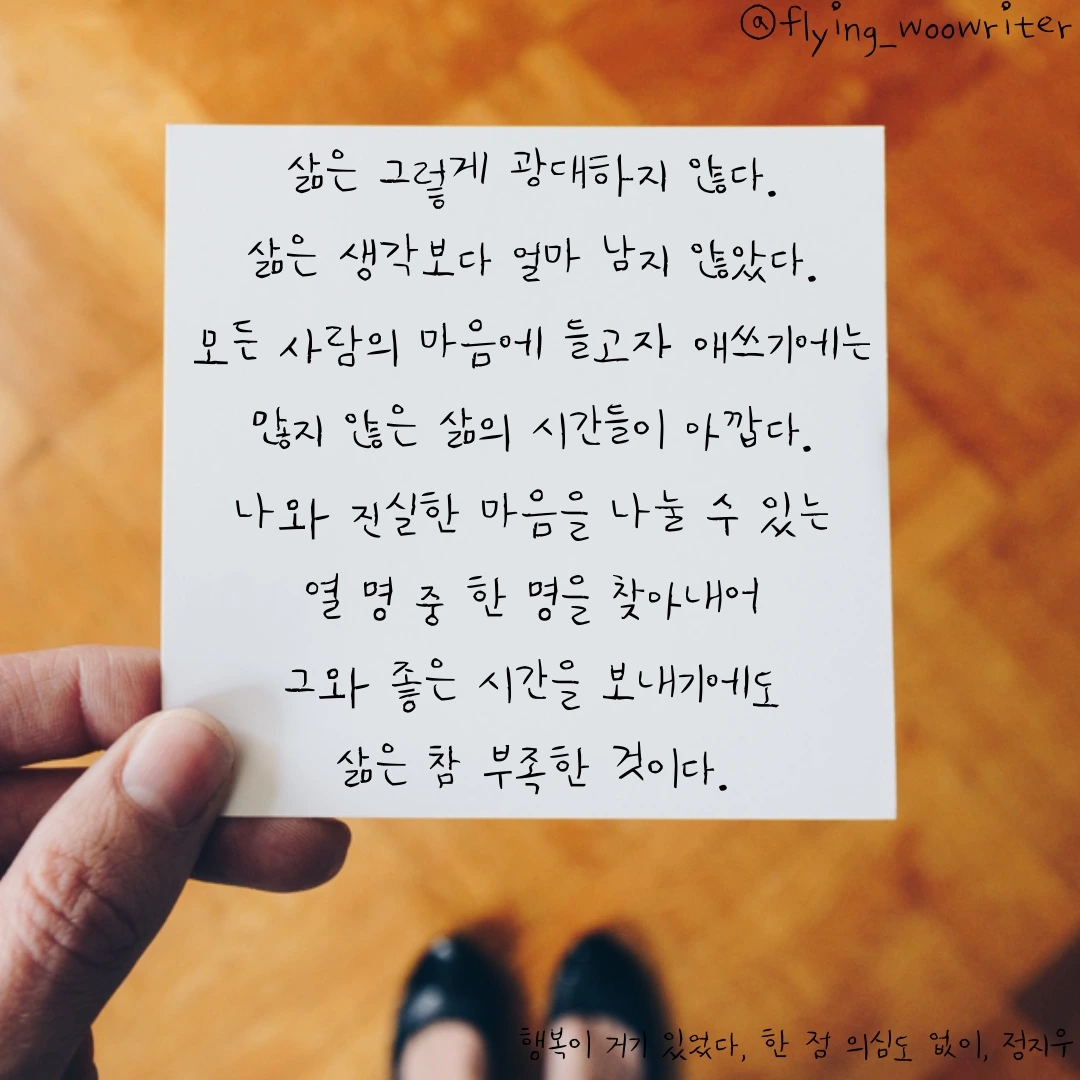 @flying_woowriter
삶은 그렇게 광대하지 않다.
삶은 생각보다 얼마 남지 않았다.
모든 사람의 마음에 들고자 애쓰기에는
많지 않은 삶의 시간들이 아깝다.
나와 진실한 마음을 나눌 수 있는
열 명 중 한 명을 찾아내어
그와 좋은 시간을 보내기에도
삶은 참 부족한 것이다.
행복이 거기 있었다, 한 점 의심도 없이, 정지우